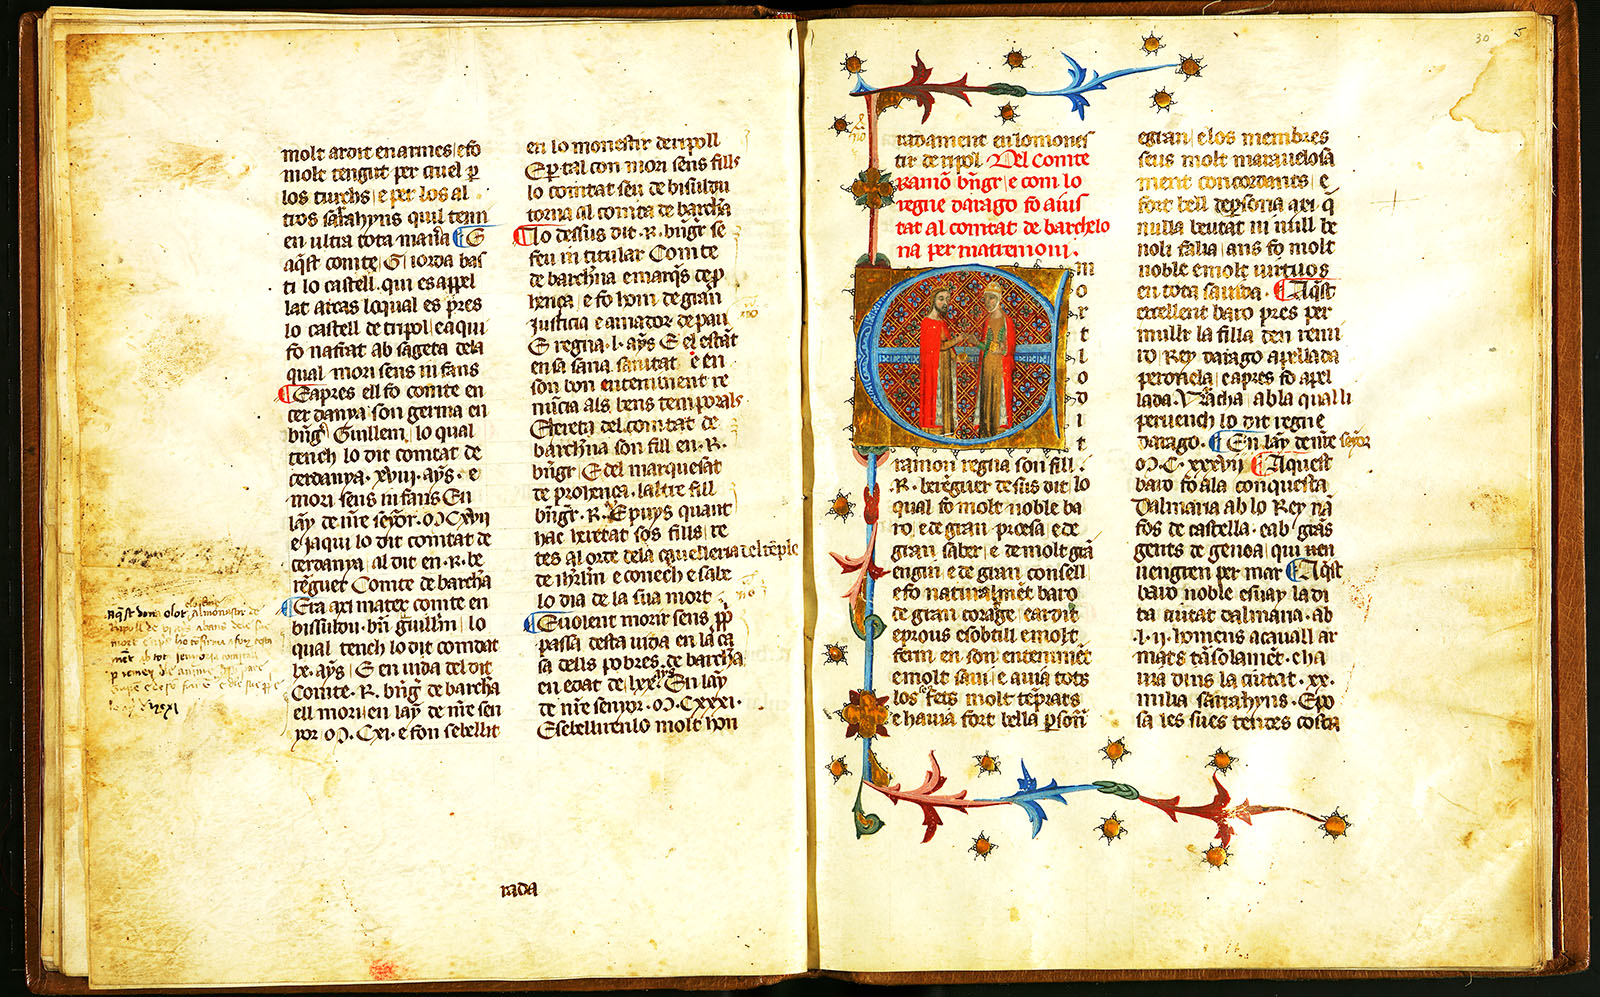 molt ardit en armes e fo
molt tengut per cruel p̱
los turchs e per los al
tros sarrahyns quil tem
en ultra tota manͣa ¶ E
aq̃st comte G iorda bas
ti lo castell qui es appel
lat arcas loqual es p̃res
lo castell de tripol e aqui
fo nafrat ab sageta dela
qual mori sens infans
¶ E apres ell fo comte en
cerdanya son germa en
bñg̃ Guillem lo qual
tench lo dit comtat de
cerdanya xviii ays e
mori sens infans En
lay de ñre seyor M Cxvii
e jaqui lo dit comtat de
cerdanya al dit en R be
reguer Comte de barcħa
¶ Era axi matex comte en
bissuldu bñ guillm̃ lo
qual tench lo dit comdat
ays E en vida del dit
Comte R bñg̃ de barcħa
ell mori en lay de ñre sen
yor M Cxi e fon sebellit
en lo monestir de ripoll
E p̱ tal con mori sens fills
lo comtat seu de bisuldu
torna al comta de barcħa
¶ lo dessus dit R bñgr se
feu intitular Comte
de barcħna e marq̃s de p̱
hença e fo hom de gran
justicia e amador de pau
E regna l ays E el estãt
en sa sana sanitat e en
son bon enteniment re
nũcia als bens temporals
E lereta del comtat de
barcħna son fill en R
bñgr E del marquesat
de prohença laltre fill
bñgr R E puys quant
hac heretat sos fills re
tes al orde dela cauelleria del tẽple
de ihrłm e conech e sabe
lo dia de la sua mort
¶ E uolent morir sens pp̃
passa desta uida en la ca
sa dells pobres de barcħa
en edat de lxx ays En lay
de ñre senyor M Cxxxi
E sebellirenlo molt hon
rada
30
radament en lo mones
tir de ripol Del comte
Ramõ bñgr e com lo
regne darago fo aius
tat al comtat de barchelo
na per matremoni
E
m
o
r
t
l
o
d
i
t
ramon regna son fill
R berẽguer desus dit lo
qual fo molt noble ba
ro e de gran proesa e de
gran saber e de molt grã
engin e de gran consell
e fo naturalmẽt baro
de gran coratge e ardit
e prous e sobtill e molt
ferm en son entenimẽt
e molt saui e auia tots
los fets molt temprats
e hauia fort bella p̱sonͣ
egran e los membres
seus molt marauelosa
ment concordants e
fort bell de p̱soria axi q̃
nulla beutat ni null be
noli falia ans fo molt
noble e molt uirtuos
en tota sauiesa ¶ Aq̃st
excellent baro pres per
muller la filla den remi
ro Rey darago apellada
peronela e apres fo apel
lada Vracha ab la qual li
peruench lo dit regne
darago ¶ En lay de ñre seyor
M C xxxvii ¶ Aquest
baro fo a la conquesta
Dalmaria ab lo Rey nã
fos de castella e ab grãs
gents de genoa qui uen
uengren per mar ¶ Aq̃st
baro noble esuay la di
ta ciutat dalmaria ab
l ii homens a cauall ar
mats tã solamẽt e ha
uia dins la ciutat xx
milia sarrahyns E po
sa les sues tendes costa